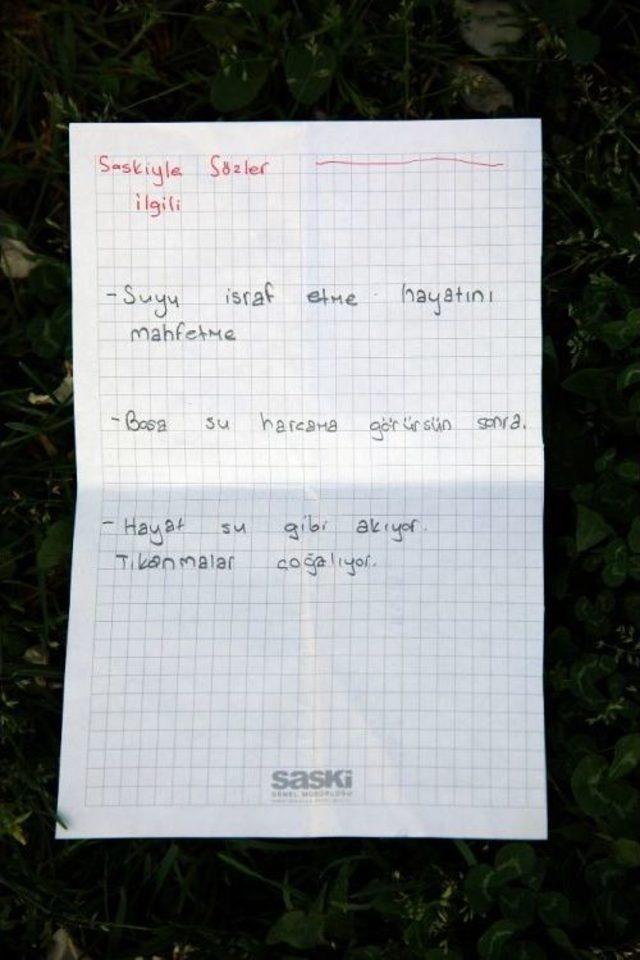 Saskiyle Sözler
ilgili
- Suyu israf etme hayatını
mahfetme
- Bosa su harcama görürsün sonra.
- Hayat su gibi akıyor.
Tıkanmalar çoğalıyor.
saski
GENEL MÜDÜRLÜĞÜ